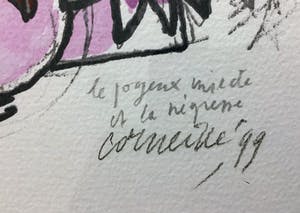 le joyeux insecte
et la négresse
Corneille '99